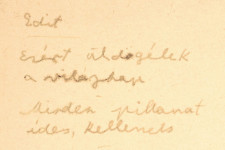 Edit
Ezért üldögélek
a világhap
Minden pillanat
édes, kellemes